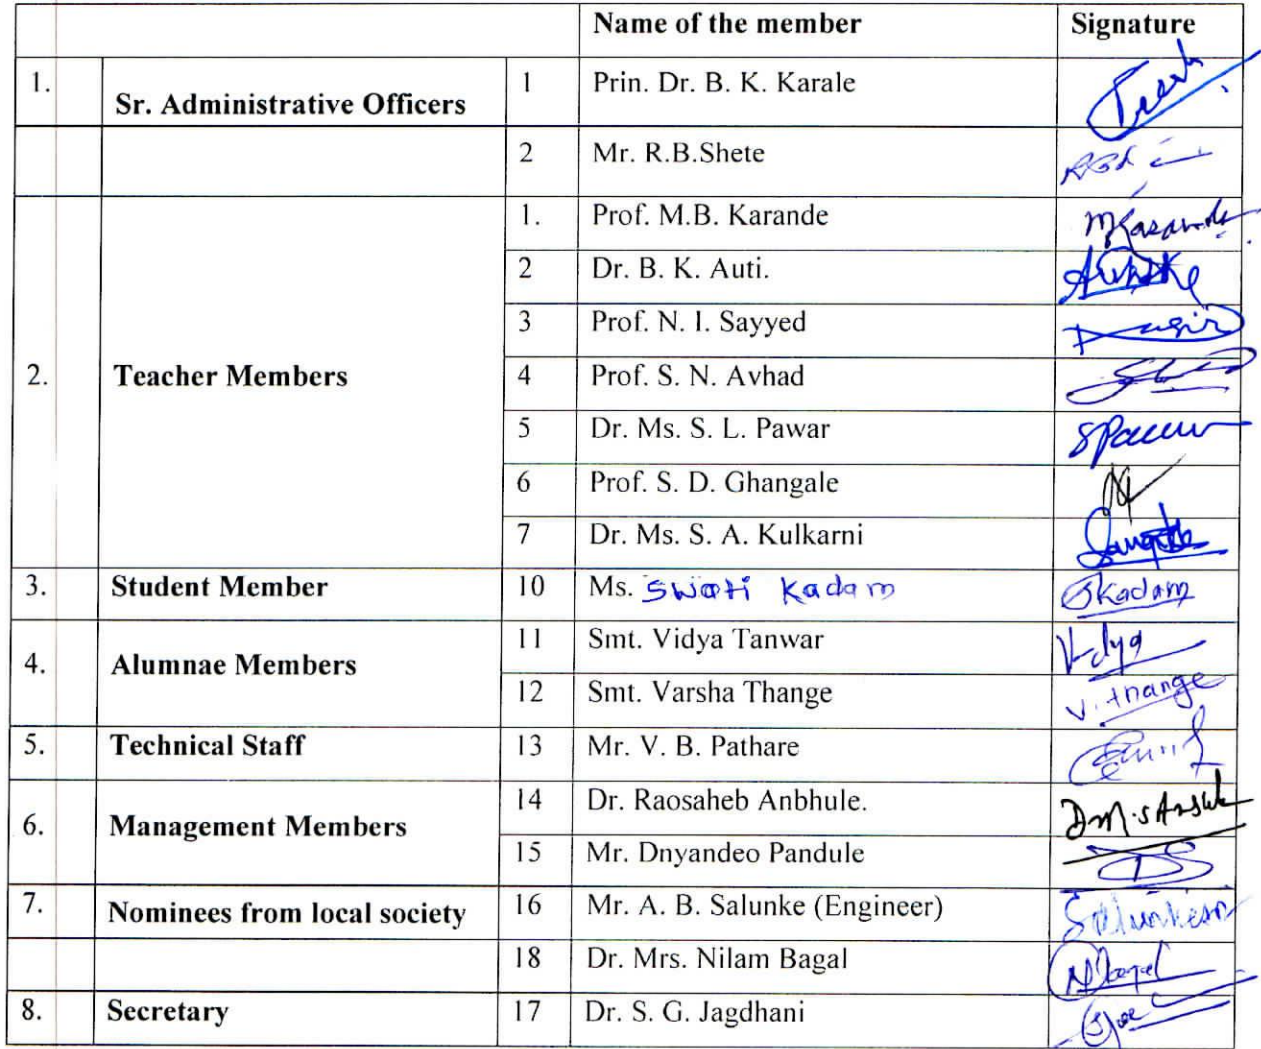 Name of the member Signature
1. Sr. Administrative Officers 1 Prin. Dr. B. K. Karale
2 Mr. R.B.Shete
1. Prof. M.B. Karande MKarande
2 Dr. B. K. Auti.
3 Prof. N. I. Sayyed
2. Teacher Members 4 Prof. S. N. Avhad
5 Dr. Ms. S. L. Pawar SPawar
6 Prof. S. D. Ghangale
7 Dr. Ms. S. A. Kulkarni
3. Student Member 10 Ms. Swati Kadam SKadam
4. Alumnae Members 11 Smt. Vidya Tanwar Vidya
12 Smt. Varsha Thange V. Thange
5. Technical Staff 13 Mr. V. B. Pathare
6. Management Members 14 Dr. Raosaheb Anbhule.
15 Mr. Dnyandeo Pandule
7. Nominees from local society 16 Mr. A. B. Salunke (Engineer)
18 Dr. Mrs. Nilam Bagal
8. Secretary 17 Dr. S. G. Jagdhani